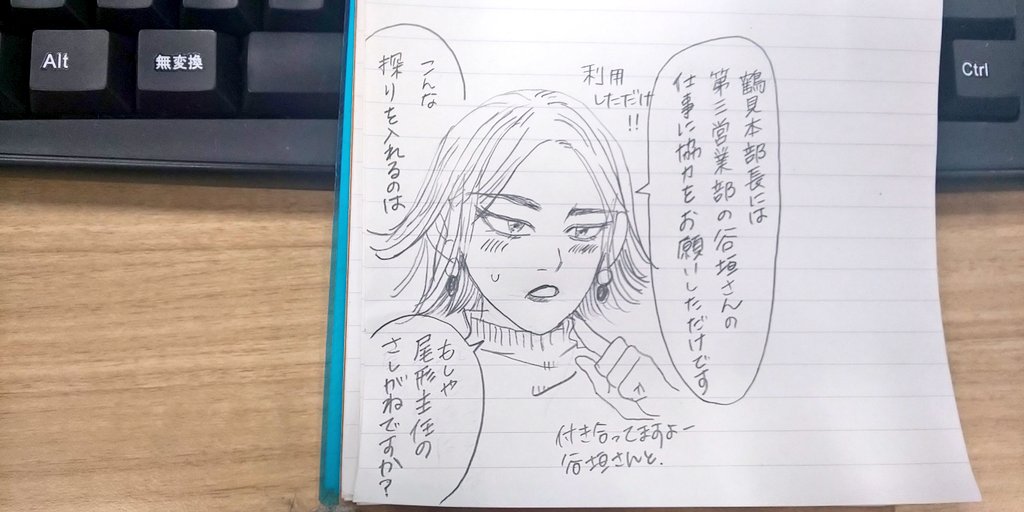 Alt
無変換
Ctrl
鶴見本部長には
第三営業部の谷垣さんの
仕事に協力をお願いしただけです
利用
しただけ
!!
こんな
探りを入れるのは
もしや
尾形主任の
さしがねですか?
付き合ってますよー
谷垣さんと.